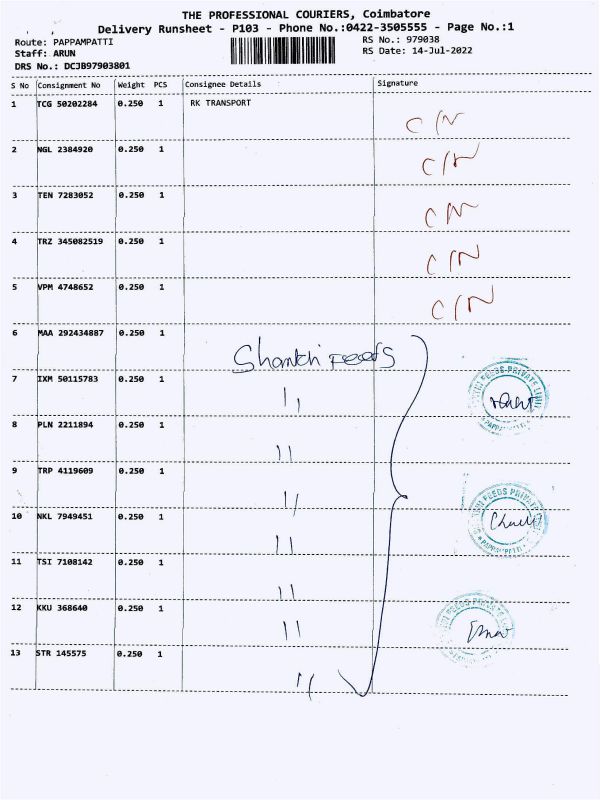 THE PROFESSIONAL COURIERS, Coimbatore
Delivery Runsheet - P103 - Phone No.:0422-3505555 - Page No.:1
Route: PAPPAMPATTI
RS No.: 979038
Staff: ARUN
RS Date: 14-Jul-2022
DRS No.: DCJB97903801
S No Consignment No Weight PCS Consignee Details Signature
1 TCG 50202284 0.250 1 RK TRANSPORT
C/N
2 NGL 2384920 0.250 1
C/N
3 TEN 7283052 0.250 1
C/N
4 TRZ 345082519 0.250 1
C/N
5 VPM 4748652 0.250 1
C/N
6 MAA 292434887 0.250 1
Feeds
7 IXM 50115783 0.250 1
"
FEEDS PRIVATE
8 PLN 2211894 0.250 1
"
9 TRP 4119609 0.250 1
"
FEEDS PRIVATE
10 NKL 7949451 0.250 1
"
11 TSI 7108142 0.250 1
"
12 KKU 368640 0.250 1
"
FEEDS
13 STR 145575 0.250 1
"